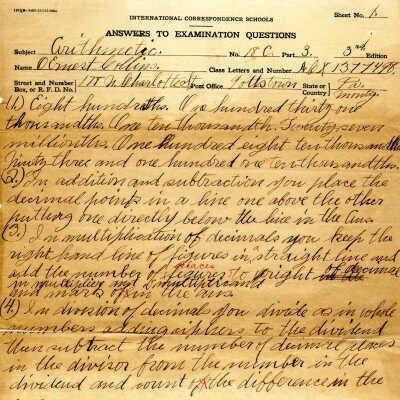 INTERNATIONAL CORRESPONDENCE SCHOOLS
Sheet No. 1.
ANSWERS TO EXAMINATION QUESTIONS
Subject Arithmetic. No. 18C Part 3. 3rd Edition
Name O Ernest Collins. Class Letters and Number
Street and Number Box, or R. F. D. No. 177 N Charlotte St Post Office, Pottstown State or Country Pa.
(1.) Eight hundredths. One hundred thirty one
thousandths. One ten thousandth. Seventy seven
millionths. One hundred eight ten thousandths
Ninty three and one hundred one ten thousandths.
(2.) In addition and subtraction you place the
decimal points in a line one above the other
putting one directly below the line in the Ans.
(3.) In multiplication of decimals you keep the
right hand line of figures in straight line and
add the number of figures to right of decimal
in multiplier and multiplicand
and marks off in the ans.
(4.) In division of decimal you divide as in whole
numbers adding ciphers to the dividend
then subtract the number of decimal places
in the divisor from the number in the
dividend and count off the difference in the